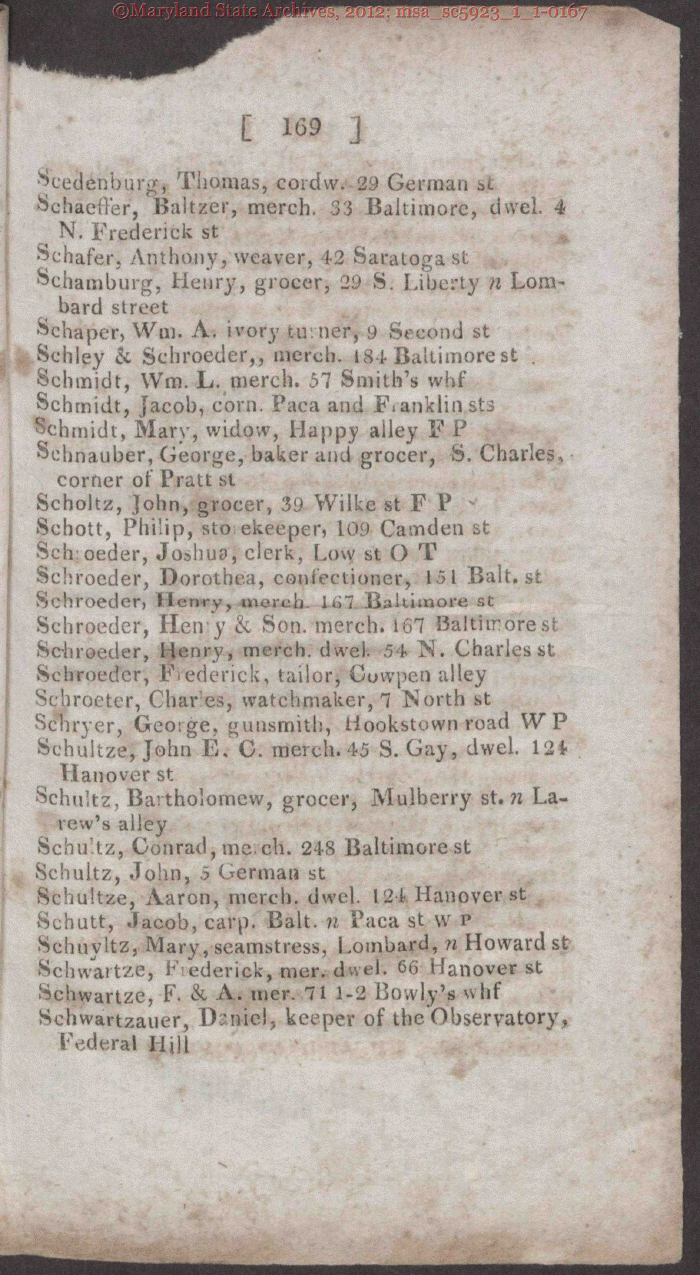 ©Maryland State Archives, 2012: msa_sc5923_1_1-0167
[ 169 ]
Scedenburg, Thomas, cordw. 29 German st
Schaeffer, Baltzer, merch. 33 Baltimore, dwel. 4
N. Frederick st
Schafer, Anthony, weaver, 42 Saratoga st
Schamburg, Henry, grocer, 29 S. Liberty n Lom-
bard street
Schaper, Wm. A. ivory turner, 9 Second st
Schley & Schroeder,, merch. 184 Baltimore st
Schmidt, Wm. L. merch. 57 Smith's whf
Schmidt, Jacob, corn. Paca and Franklin sts
Schmidt, Mary, widow, Happy alley F P
Schnauber, George, baker and grocer, S. Charles,
corner of Pratt st
Scholtz, John, grocer, 39 Wilke st F P
Schott, Philip, storekeeper, 109 Camden st
Schroeder, Joshua, clerk, Low st O T
Schroeder, Dorothea, confectioner, 151 Balt. st
Schroeder, Henry, merch. 167 Baltimore st
Schroeder, Henry & Son. merch. 167 Baltimore st
Schroeder, Henry, merch. dwel. 54 N. Charles st
Schroeder, Frederick, tailor, Cowpen alley
Schroeter, Charles, watchmaker, 7 North st
Schryer, George, gunsmith, Hookstown road W P
Schultze, John E. C. merch. 45 S. Gay, dwel. 124
Hanover st
Schultz, Bartholomew, grocer, Mulberry st. n La-
rew's alley
Schultz, Conrad, merch. 248 Baltimore st
Schultz, John, 5 German st
Schultze, Aaron, merch. dwel. 124 Hanover st
Schutt, Jacob, carp. Balt. n Paca st W P
Schuyltz, Mary, seamstress, Lombard, n Howard st
Schwartze, Frederick, mer. dwel. 66 Hanover st
Schwartze, F. & A. mer. 71 1-2 Bowly's whf
Schwartzauer, Daniel, keeper of the Observatory,
Federal Hill